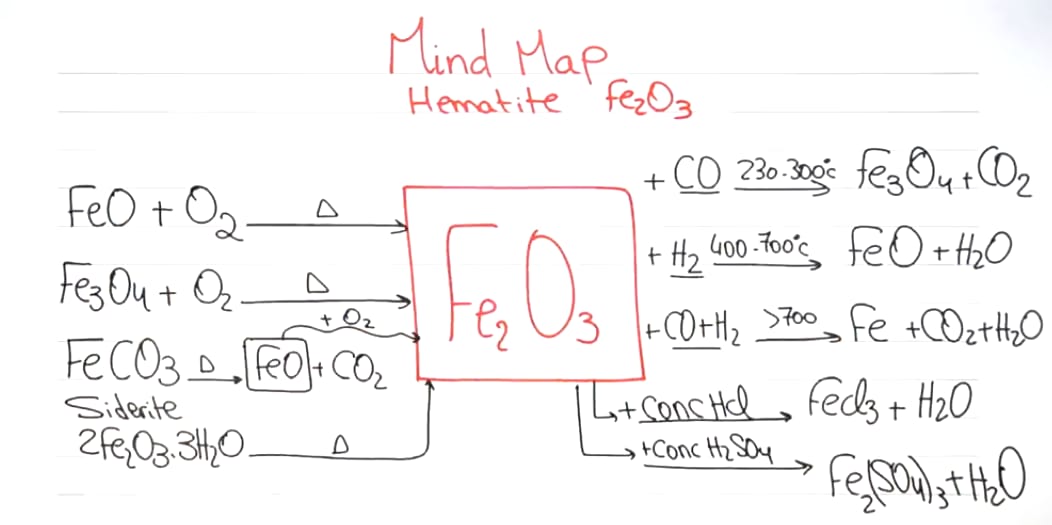 Mind Map
Hematite Fe₂O₃
FeO + O₂ —Δ→
Fe₃O₄ + O₂ —Δ→
+ O₂
FeCO₃ —Δ→ FeO + CO₂
Siderite
2Fe₂O₃.3H₂O —Δ→
Fe₂O₃
+ CO —230-300°c→ Fe₃O₄ + CO₂
+ H₂ —400-700°c→ FeO + H₂O
+ CO+H₂ —>700→ Fe + CO₂ + H₂O
+ Conc HCl → FeCl₃ + H₂O
+ Conc H₂SO₄ → Fe₂(SO₄)₃ + H₂O